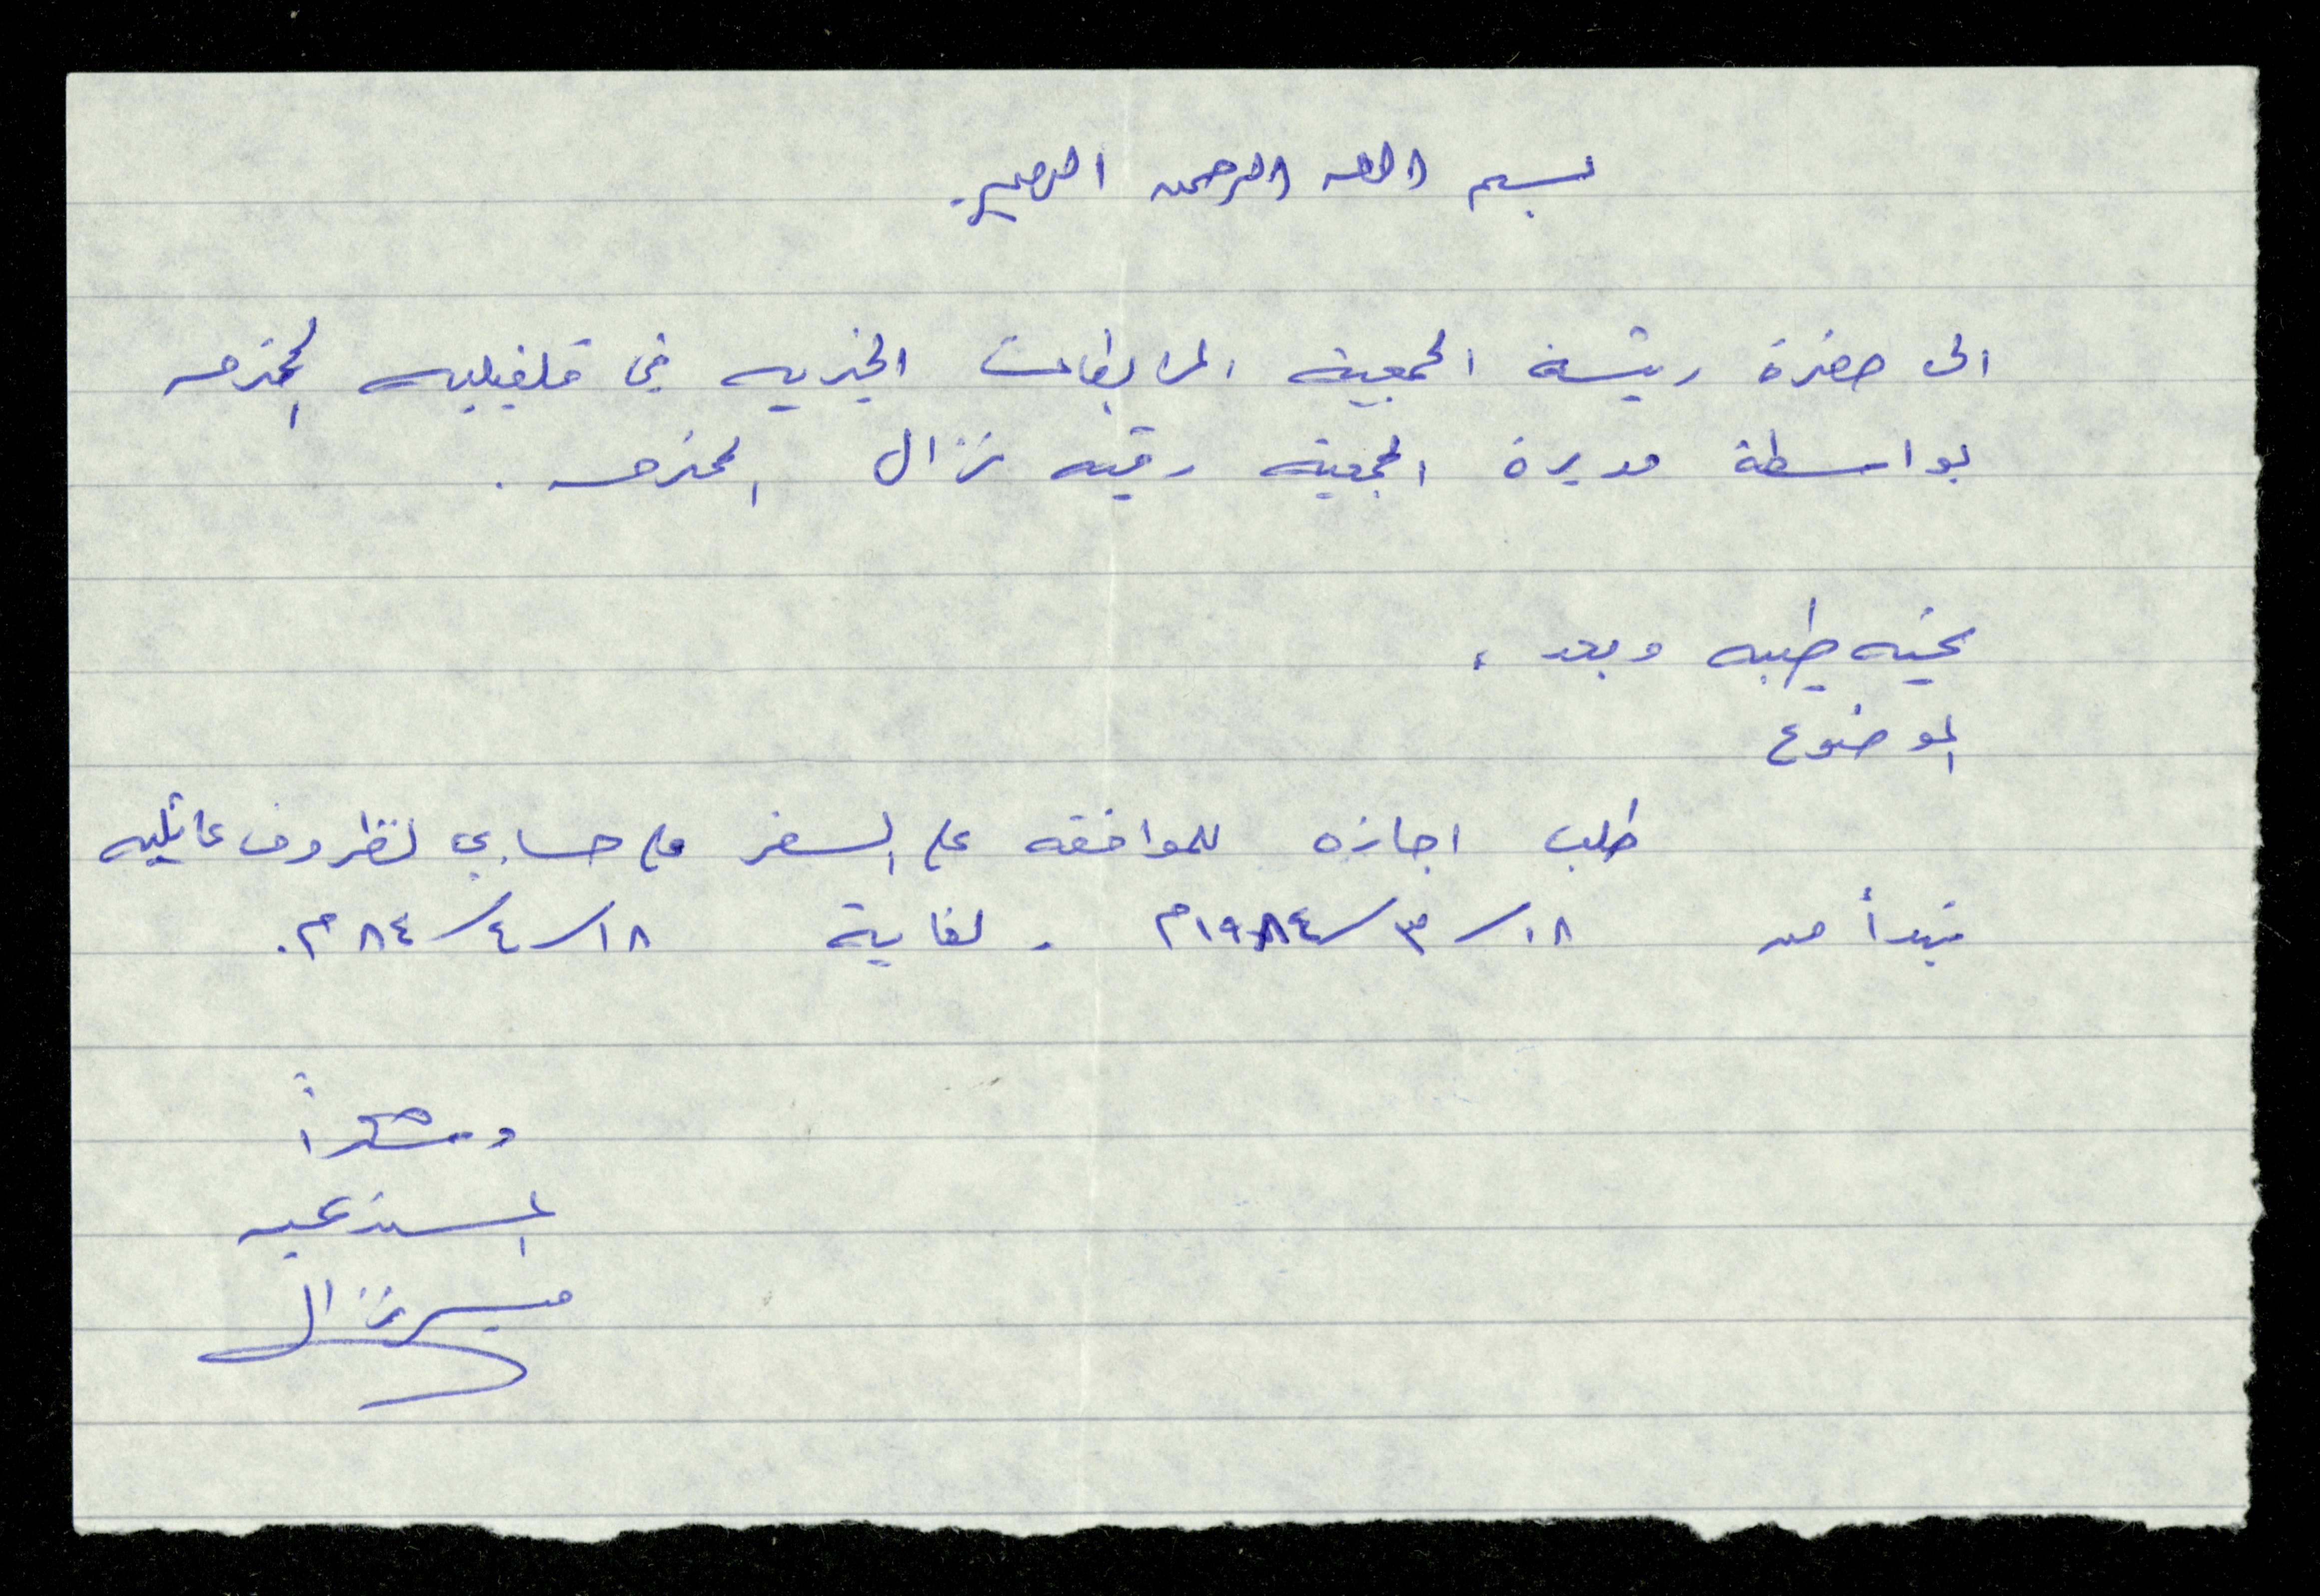 بسم الله الرحمن الرحيم.
الى حضرة رئيسة الجمعية المرابطات الخيريه في قلقيليه المحترمه
بواسطة مديرة الجمعية رقيه نزال المحترمه .
تحيه طيبه وبعد ،
الموضوع
طلب اجازه للموافقه على السفر على حسابي لظروف عائليه
تبدأ من ١٨/٣/١٩٨٤م . لغاية ١٨/٤/٨٤م.
وشكراً
المستدعيه
ميسر نزال